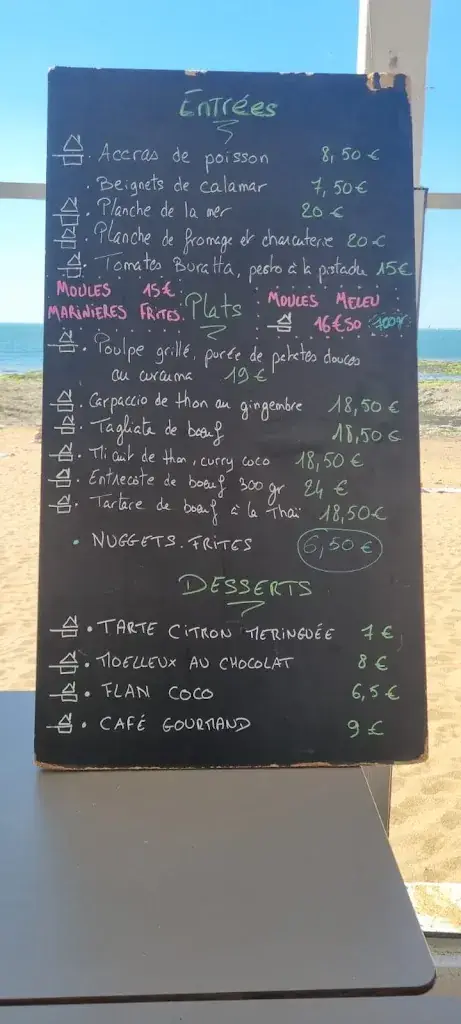 Entrées
. Accras de poisson 8,50 €
. Beignets de calamar 7,50€
. Planche de la mer 20 €
. Planche de fromage et charcuterie 20 €
. Tomates Buratta, pesto à la pistache 15€
MOULES 15€
MARINIERES FRITES
Plats
MOULES MELEU
16€50 700gr
. Poulpe grillé, purée de patates douces
au curcuma 19 €
. Carpaccio de thon au gingembre 18,50 €
. Tagliata de bœuf 18,50 €
. Mi cuit de thon, curry coco 18,50 €
. Entrecote de bœuf 300 gr 24 €
. Tartare de bœuf à la Thaï 18,50€
• NUGGETS. FRITES 6,50 €
DESSERTS
• TARTE CITRON MERINGUÉE 7 €
• MOELLEUX AU CHOCOLAT 8 €
• FLAN COCO 6,5 €
• CAFÉ GOURMAND 9 €